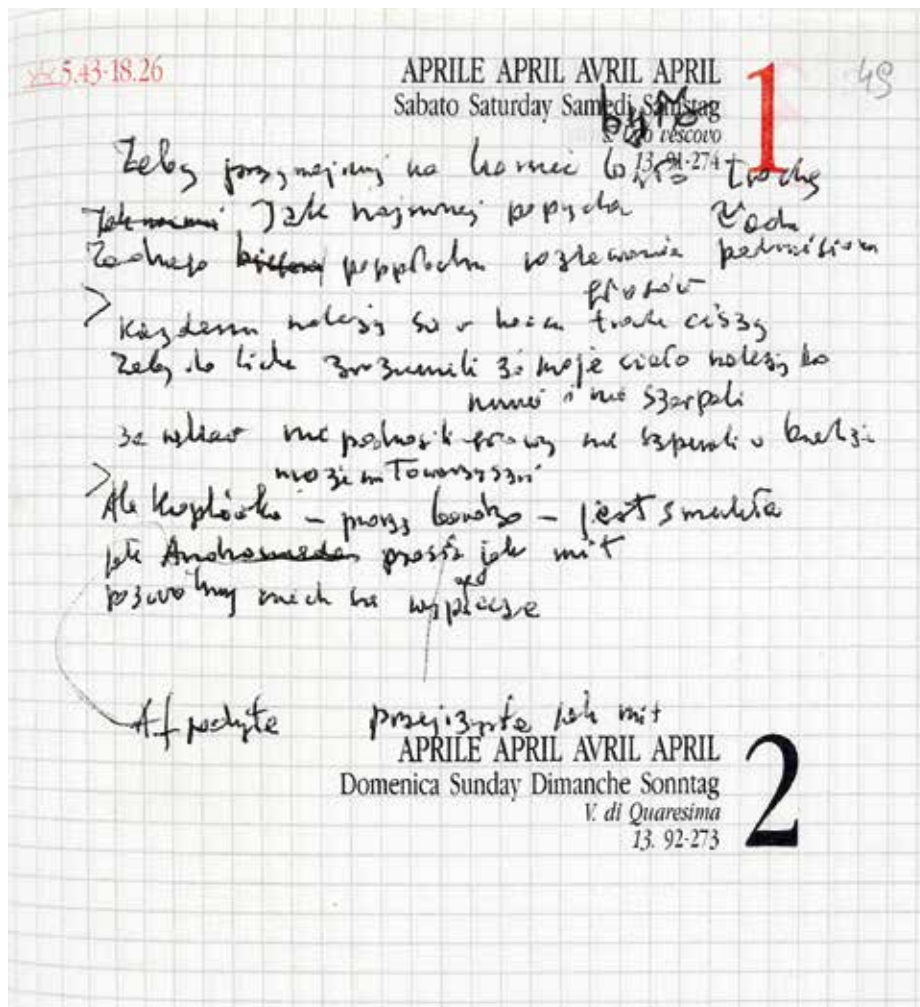 5.43-18.26
APRILE APRIL AVRIL APRIL 1
49
Sabato Saturday Samedi Samstag
było
s. Ugo vescovo
13. 91-274
Żeby przynajmniej na koniec było trochę
Jak najmniej popychań
Żadnego popłochu rozlewania podnoszenia
głosów
> Każdemu należy się w końcu trochę ciszy
Żeby do licha zrozumieli że moje ciało należy do
mnie i nie szarpali
za włosy nie podnosili głowy nie szperali w
>
Ale Kroplówka – proszę bardzo – jest smukła
jak Andromeda prosta jak mit
pozwólmy niech się wypłacze
Afrodyta przejrzysta jak mit
APRILE APRIL AVRIL APRIL 2
Domenica Sunday Dimanche Sonntag
V. di Quaresima
13. 92-273